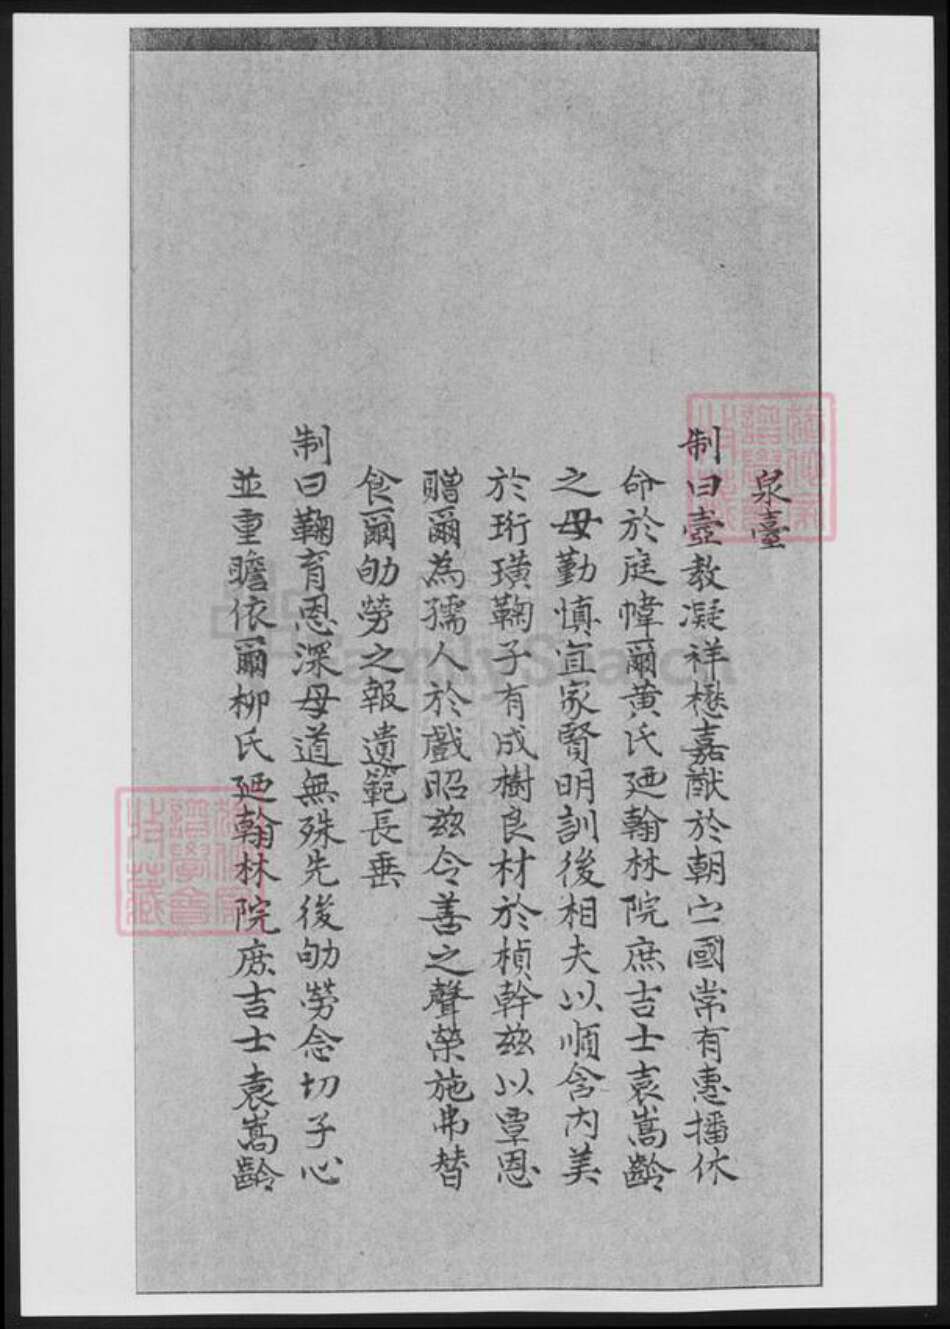 泉臺
制曰壼教凝祥懋嘉猷於朝宁國常有憲播休
命於庭幃爾黄氏廼翰林院庶吉士袁嵩齡
之母勤慎宜家賢明訓後相夫以順含内美
於珩璜鞠子有成樹良材於楨幹兹以覃恩
贈爾為孺人於戲昭兹令善之聲榮施弗替
食爾劬勞之報遺範長垂
制曰鞠育恩深母道無殊先後劬勞念切子心
並重瞻依爾柳氏廼翰林院庶吉士袁嵩齡
FamilySearch